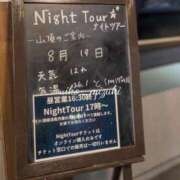 Night Tour
ナイトツアー
―山頂のご案内―
8月19日
天気 はれ
気温
昼営業16:30終了
NightTour 17時～
NightTourチケットは
オンライン購入のみです
チケット窓口での販売は一切行いません